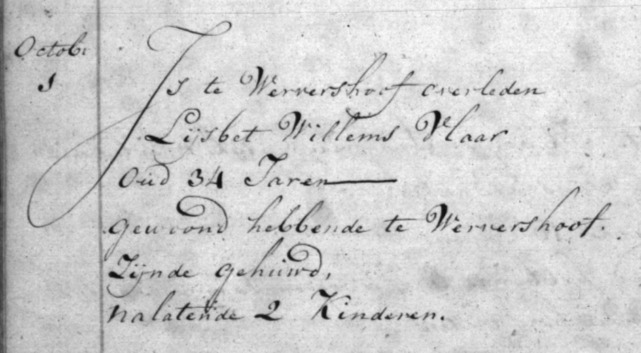 Octob:
1
Is te Wervershoof overleden
Lijsbet Willems Vlaar
Oud 34 Jaren
gewoond hebbende te Wervershoof.
Zijnde gehuwd,
nalatende 2 Kinderen.